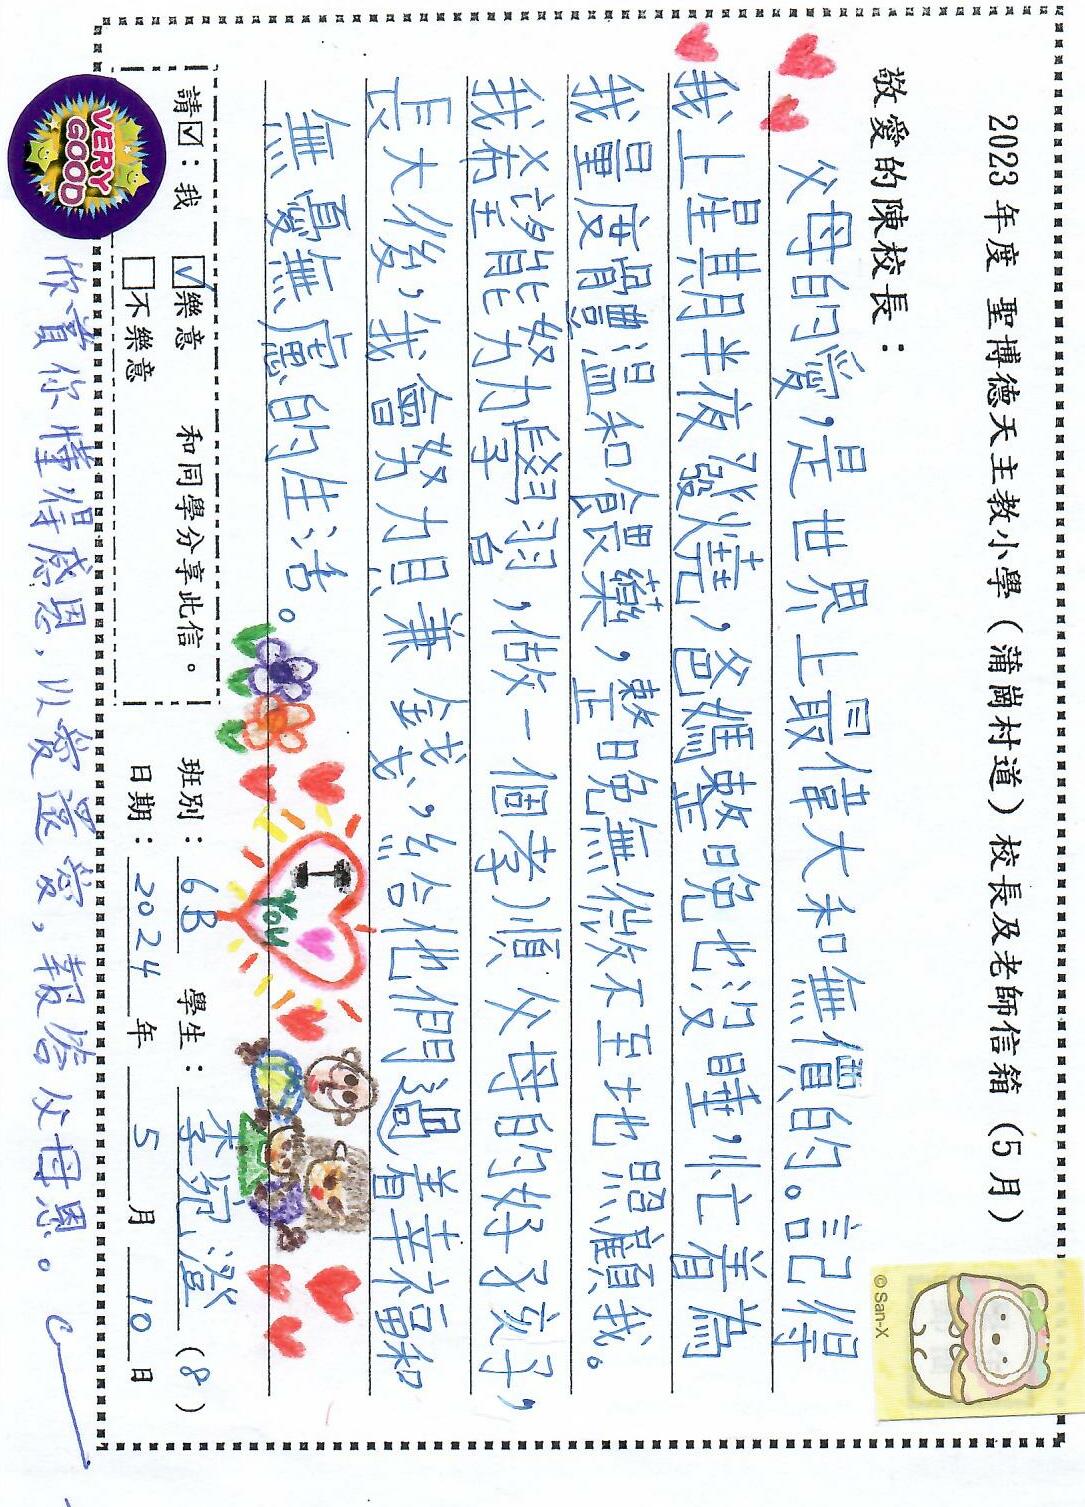 2023年度 聖博德天主教小學(蒲崗村道)校長及老師信箱(5月)
敬愛的陳校長:
父母的愛,是世界上最偉大和無價的。記得
我上星期半夜發燒,爸媽整晚也沒睡,忙着為
我量度體溫和餵藥,整晚無微不至地照顧我。
我希望能努力學習,做一個孝順父母的好孩子,
長大後,我會努力賺錢,給他們過着幸福和
無憂無慮的生活。
I
You
請☑:我 ☑樂意 和同學分享此信。
□不樂意
班別:6B 學生:李宛澄 (8)
日期:2024年5月10日
VERY
GOOD
欣賞你懂得感恩,以愛還愛,報答父母恩。
© San-X